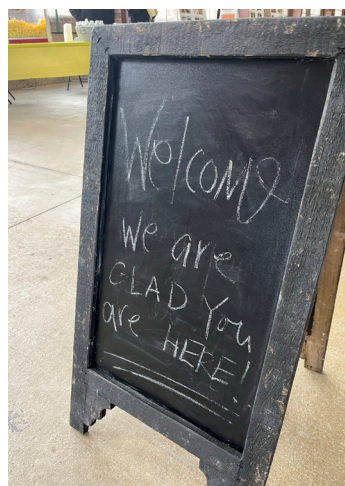 Welcome
We are
GLAD You
are HERE!